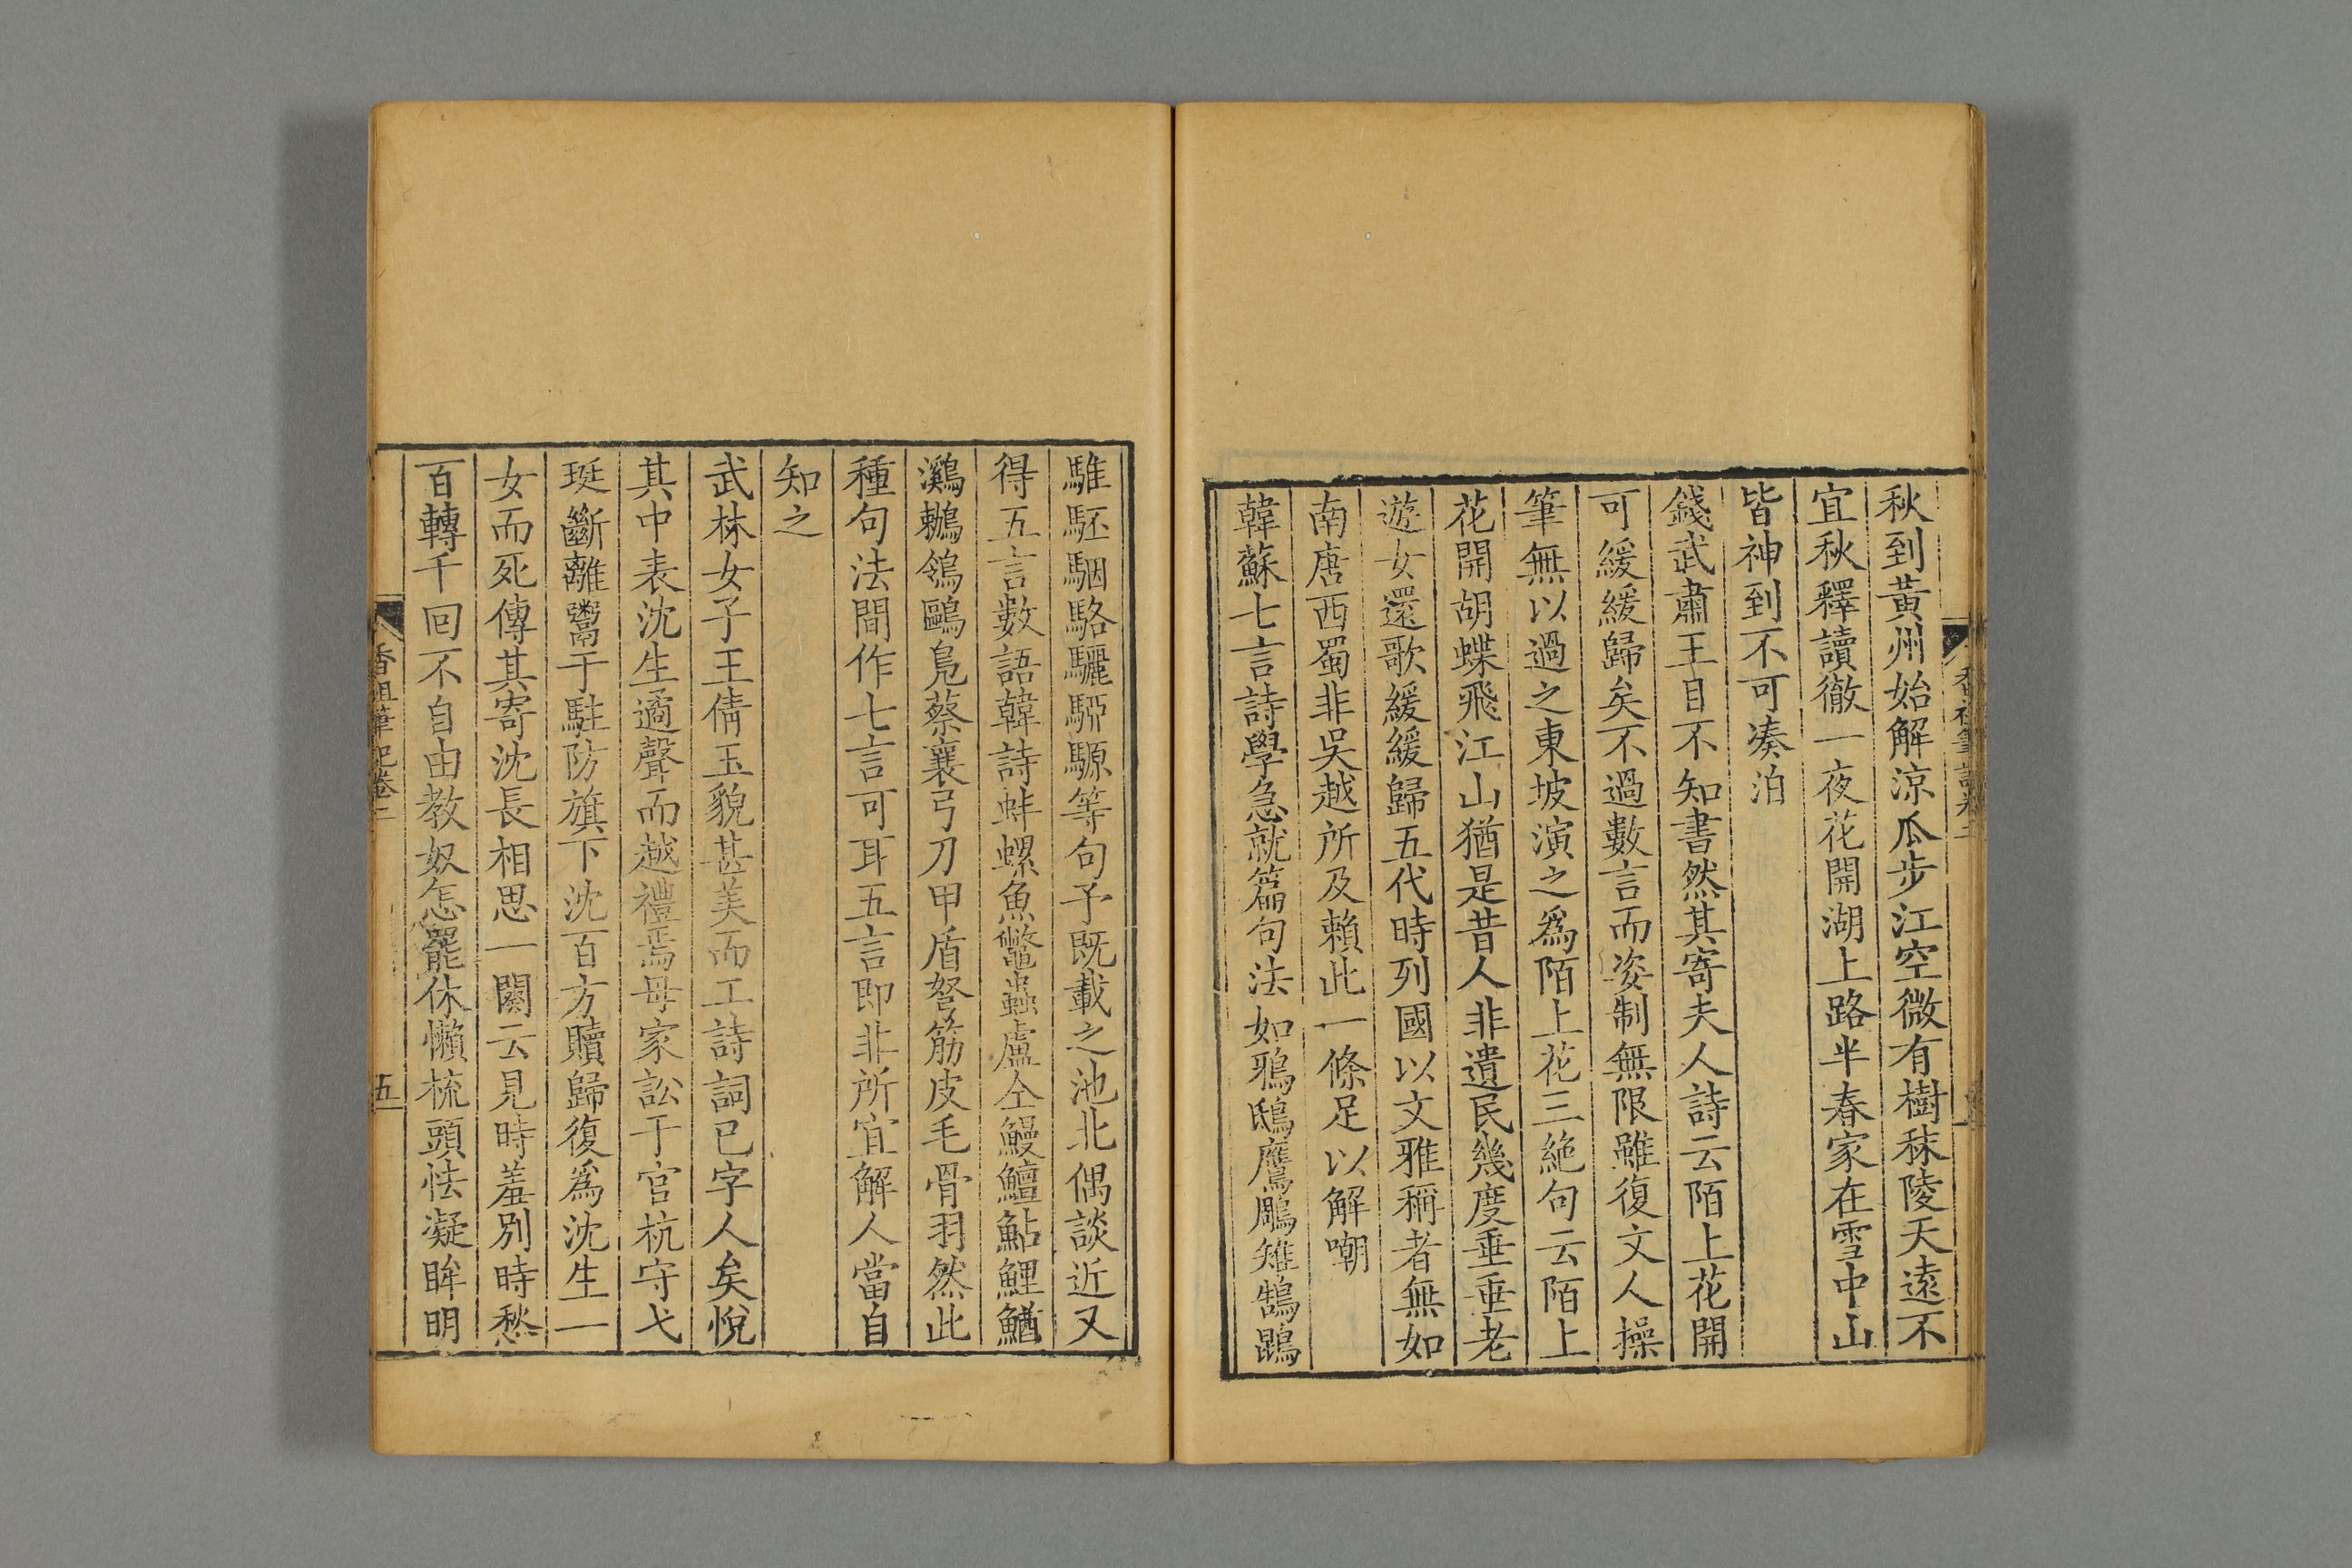 秋到黃州始解涼瓜步江空微有樹秣陵天遠不
宜秋釋讀徹一夜花開湖上路半春家在雪中山
皆神到不可湊泊
錢武肅王目不知書然其寄夫人詩云陌上花開
可緩緩歸矣不過數言而姿制無限雖復文人操
筆無以過之東坡演之爲陌上花三絶句云陌上
花開胡蝶飛江山猶是昔人非遺民幾度垂垂老
遊女還歌緩緩歸五代時列國以文雅稱者無如
南唐西蜀非吳越所及賴此一條足以解嘲
韓蘇七言詩學急就篇句法如鴉鴟鷹鵰雉鵠鵾
騅駓駰駱驪騟騵等句予既載之池北偶談近又
得五言數語韓詩蚌螺魚鼈蟲盧仝鰻鱣鮎鯉鰌
鸂鶒鴒鷗鳧蔡襄弓刀甲盾弩筋皮毛骨羽然此
種句法間作七言可耳五言即非所宜解人當自
知之
武林女子王倩玉貌甚美而工詩詞已字人矣悅
其中表沈生遹聲而越禮焉母家訟于官杭守弋
珽斷離鬻于駐防旗下沈百方贖歸復爲沈生一
女而死傳其寄沈長相思一闋云見時羞別時愁
百轉千回不自由教奴怎罷休懶梳頭怯凝眸明
香祖筆記卷二
五